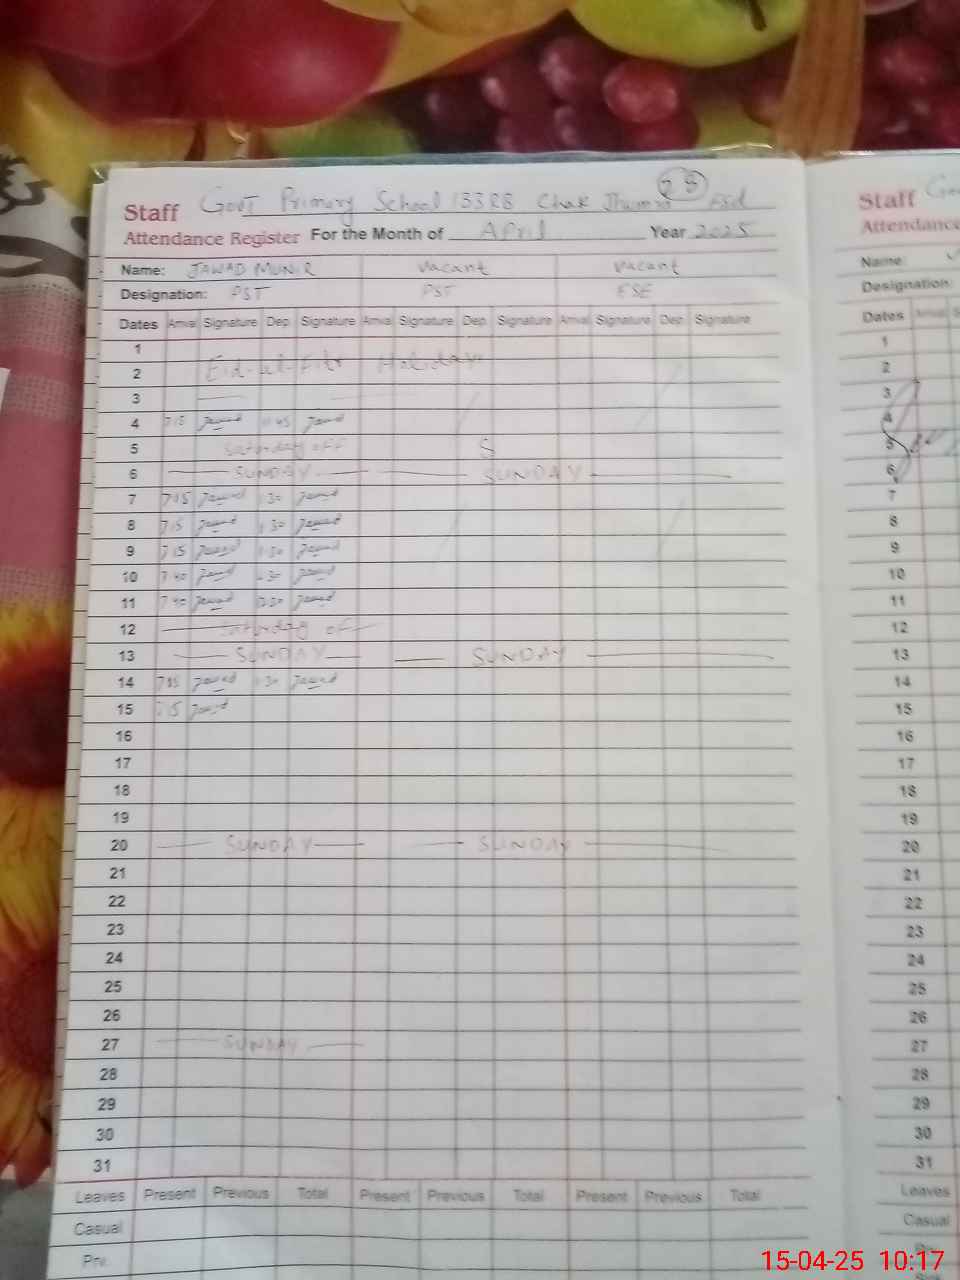 28
Staff Govt Primary School 133 RB Chak Jhumra Fsd
Attendance Register For the Month of April Year 2025
Name: JAWAD MUNIR Vacant Vacant
Designation: PST PST ESE
Dates Arrival Signature Dep. Signature Arrival Signature Dep. Signature Arrival Signature Dep. Signature
1
2 Eid-ul-Fitr Holidays
3
4 7 15 Jawad 11 45 Jawad
5 Saturday off S
6 SUNDAY SUNDAY
7 7 15 Jawad 1 30 Jawad
8 7 15 Jawad 1 30 Jawad
9 7 15 Jawad 1 30 Jawad
10 7 40 Jawad 1 30 Jawad
11 7 40 Jawad 12 30 Jawad
12 Saturday off
13 SUNDAY SUNDAY
14 7 15 Jawad 1 30 Jawad
15 7 15 Jawad
16
17
18
19
20 SUNDAY SUNDAY
21
22
23
24
25
26
27 SUNDAY
28
29
30
31
Leaves Present Previous Total Present Previous Total Present Previous Total
Casual
Prv.
Staff
Attendance
Name:
Designation:
Dates Arrival
1
2
3
4
5
6
7
8
9
10
11
12
13
14
15
16
17
18
19
20
21
22
23
24
25
26
27
28
29
30
31
Leaves
Casual
15-04-25 10:17